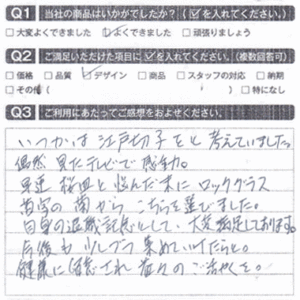 Q1 当社の商品はいかがでしたか？（☑を入れてください。）
□大変よくできました ☑よくできました □頑張りましょう
Q2 ご満足いただけた項目に☑を入れてください。（複数回答可）
□価格 □品質 ☑デザイン □商品 □スタッフの対応 □納期
□その他（ ） □特になし
Q3 ご利用にあたってご感想をおよせください。
いつかは江戸切子をと考えていました。
偶然見たテレビで感動。
早速 桜皿と悩んだ末にロックグラス
の中から こちらを選びました。
自身の退職記念として、大変満足しております。
今後も少しづつ集めていけたらと。
健康に留意され益々のご活やくを。